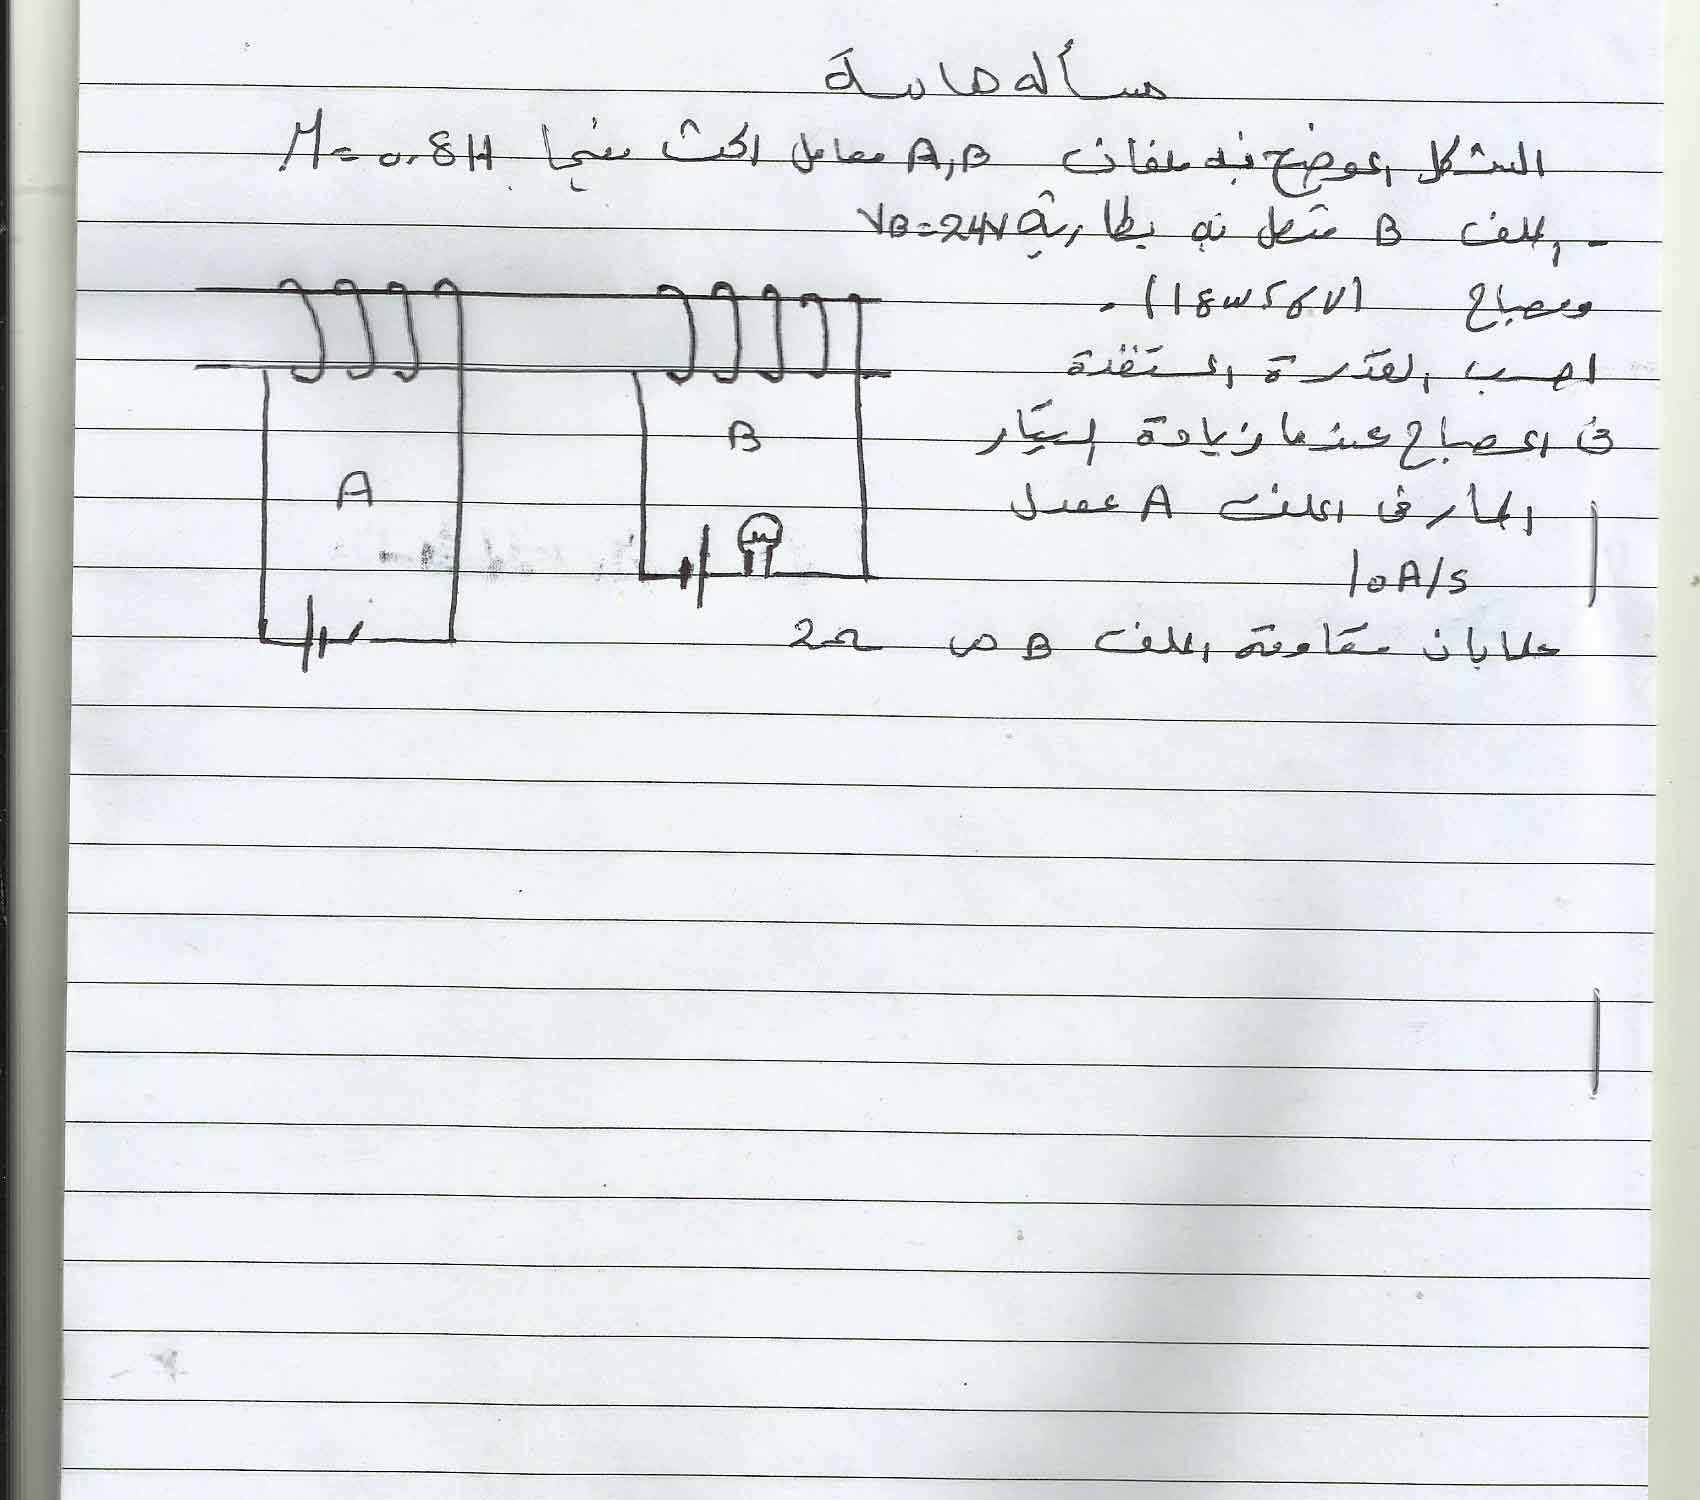 مسأله هامة
الشكل الموضح به ملفان A,B معامل الحث بينهما M=0.8H
- الملف B متصل به بطارية VB=24V
ومصباح (18w, 6V).
احسب القدرة المستنفذة
فى المصباح عندما زيادة التيار
المار فى الملف A بمعدل
10A/s
علما بان مقاومة الملف B هى 2Ω
A
B